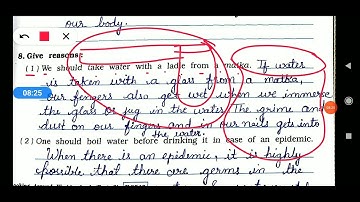 our body.
8. Give reasons:
(1) We should take water with a ladle from a matka. If water
is taken with a glass from a matka,
our fingers also get wet when we immerse
the glass or jug in the water. The grime and
dust on our fingers and in our nails gets into
the water.
(2) One should boil water before drinking it in case of an epidemic.
When there is an epidemic, it is highly
possible that there are germs in the
08:25